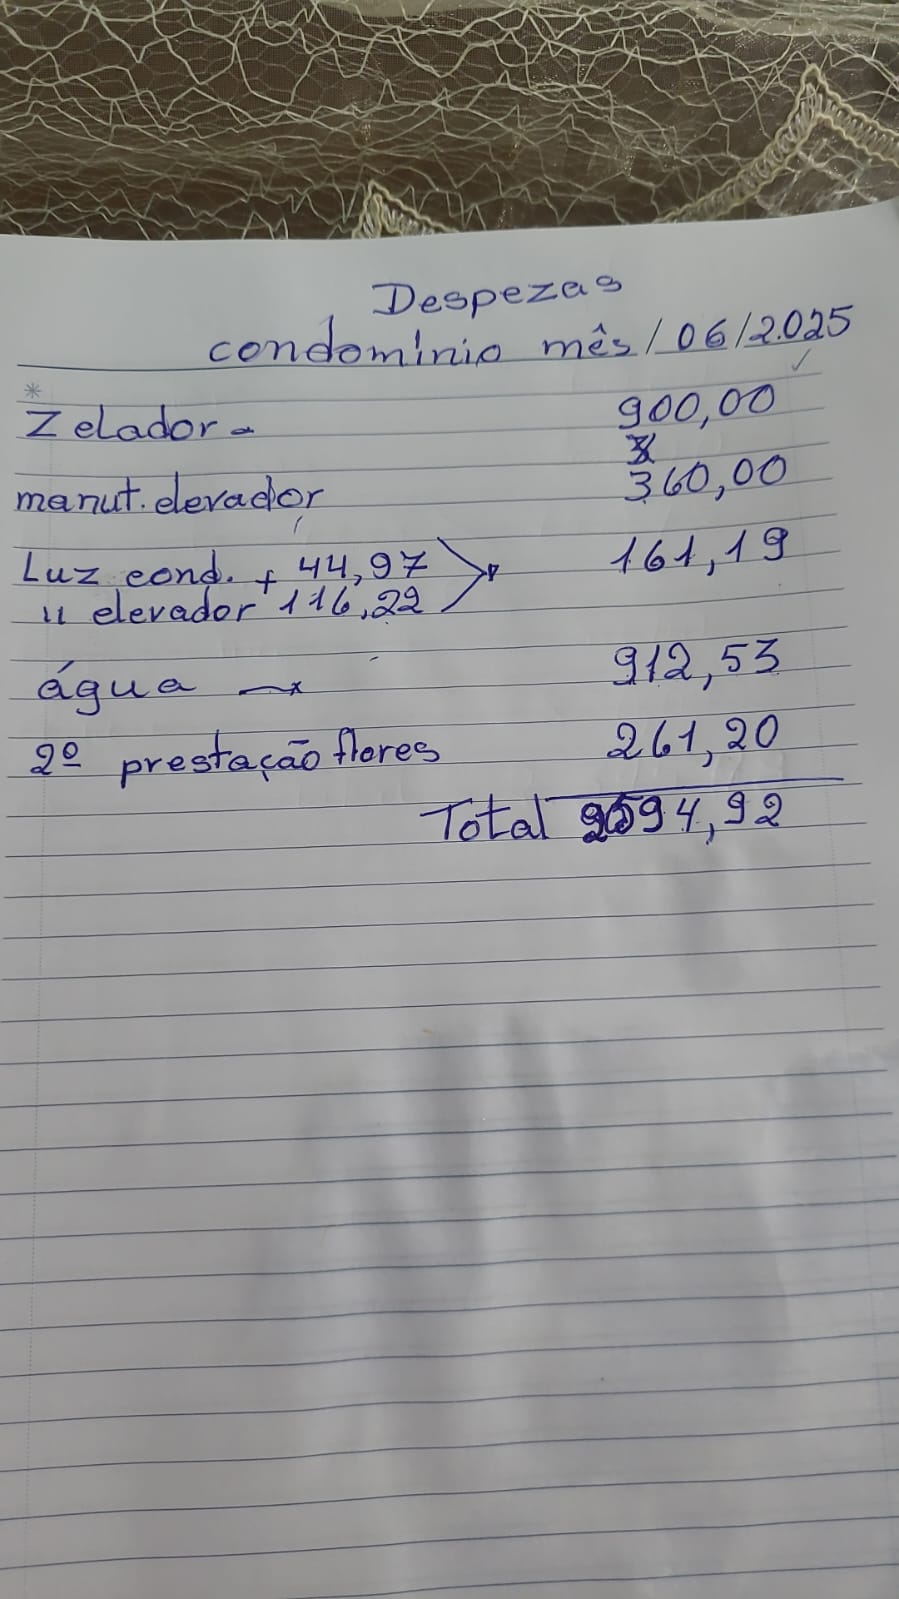 Despezas
condomínio mês/06/2.025
*
Zelador - 900,00
manut. elevador 360,00
Luz cond. + 44,97 161,19
" elevador 116,22
água 912,53
2º prestação flores 261,20
Total 2594,92